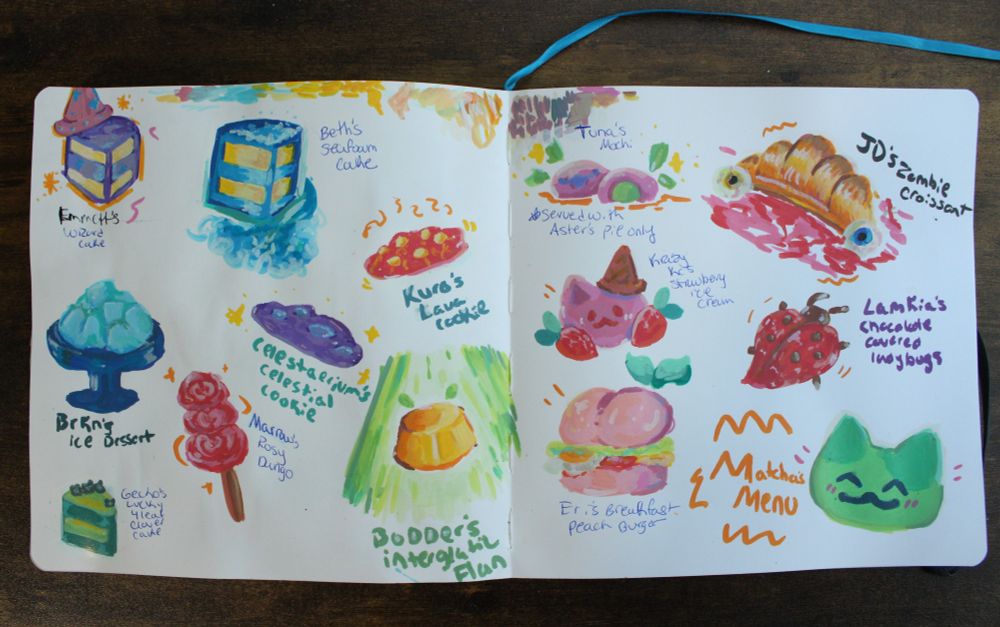 Emmett's
Wizard
Cake
Beth's
Seafoam
Cake
Kuro's
Lava
cookie
Celestaerium's
celestial
cookie
Brkn's
ice Dessert
Marrow's
Rosy
Dango
Gecko's
Lucky
4 leaf
clover
cake
BoDDer's
interglatic
Flan
Tuna's
Mochi
served with
Aster's pie only
JD's Zombie
Croissant
Krazy
Kc's
Strawberry
ice
Cream
LamKia's
chocolate
covered
ladybugs
Eri's Breakfast
Peach Burger
Matcha's
Menu